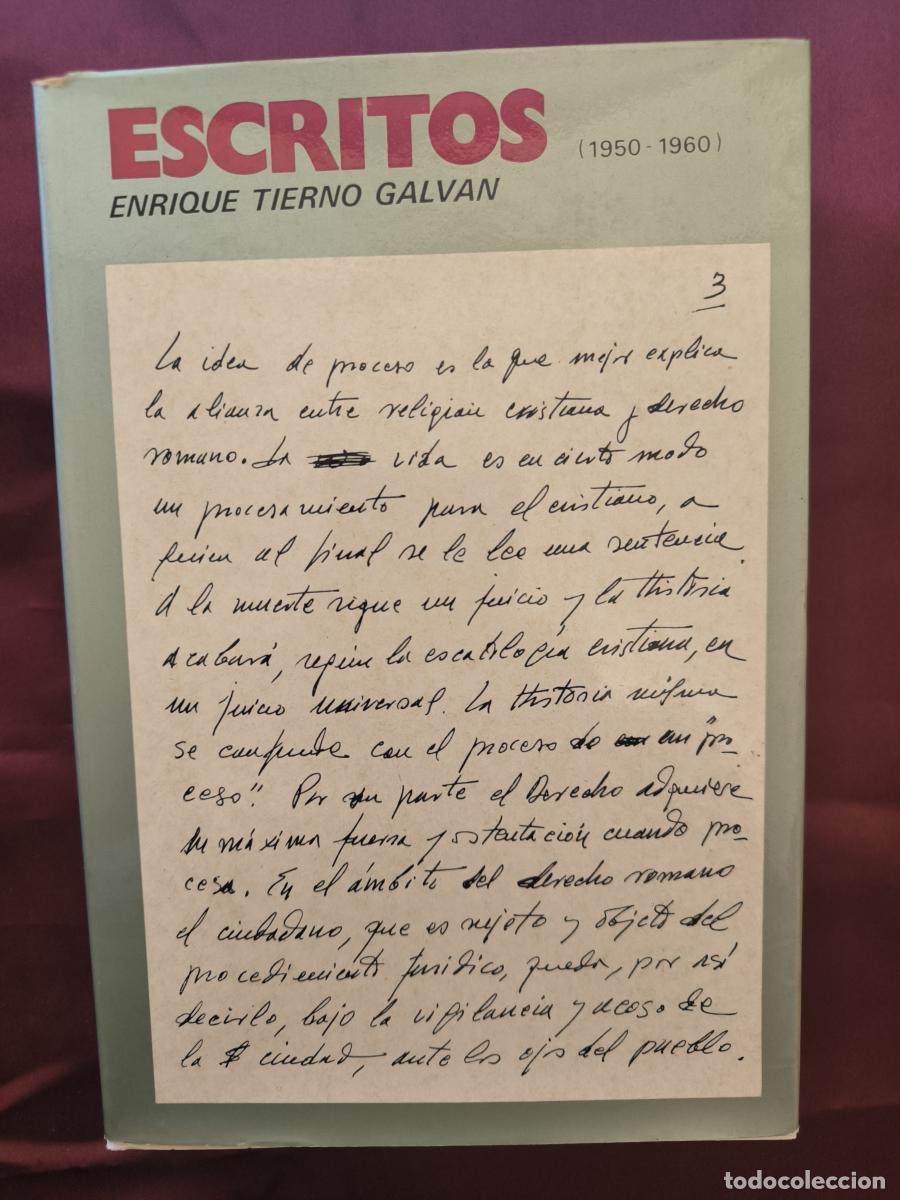 ESCRITOS
(1950-1960)
ENRIQUE TIERNO GALVAN
3
La idea de proceso es la que mejor explica
la alianza entre religión cristiana y derecho
romano. La vida es en cierto modo
un procesamiento para el cristiano, a
quien al final se le lee una sentencia.
A la muerte sigue un juicio y la Historia
acabará, según la escatología cristiana, en
un juicio universal. La Historia misma
se confunde con el proceso de un "pro-
ceso". Por su parte el Derecho adquiere
su máxima fuerza y ostentación cuando pro-
cesa. En el ámbito del derecho romano
el ciudadano, que es sujeto y objeto del
procedimiento jurídico, queda, por así
decirlo, bajo la vigilancia y acoso de
la ciudad, ante los ojos del pueblo.
todocoleccion